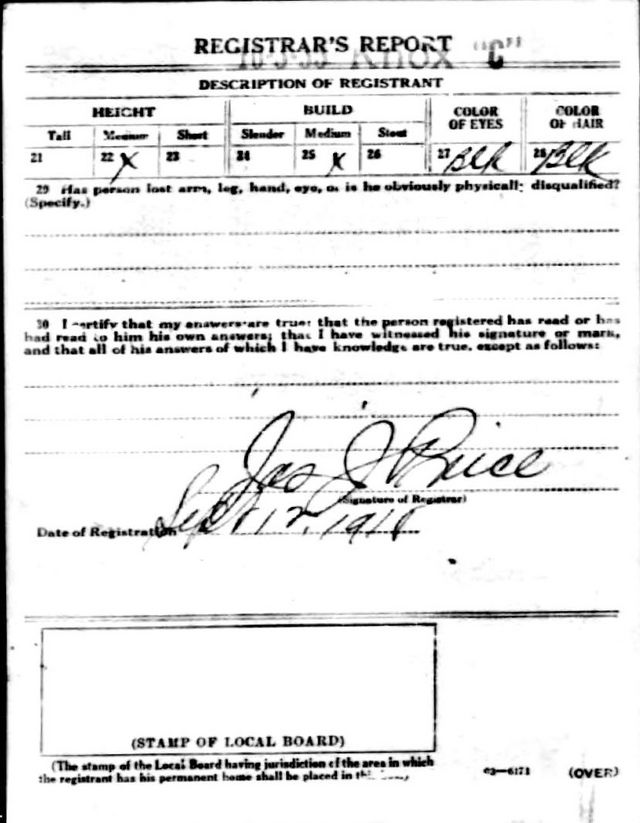 REGISTRAR'S REPORT "C"
DESCRIPTION OF REGISTRANT
HEIGHT BUILD COLOR OF EYES COLOR OF HAIR
Tall Medium Short Slender Medium Stout
21 22 X 23 24 25 X 26 27 Blk 28 Blk
29 Has person lost arm, leg, hand, eye, or is he obviously physically disqualified?
(Specify.)
30 I certify that my answers are true; that the person registered has read or has
had read to him his own answers; that I have witnessed his signature or mark,
and that all of his answers of which I have knowledge are true, except as follows:
Jas J Price
(Signature of Registrar)
Date of Registration Sept 12, 1918
(STAMP OF LOCAL BOARD)
(The stamp of the Local Board having jurisdiction of the area in which
the registrant has his permanent home shall be placed in this
03—6171 (OVER)